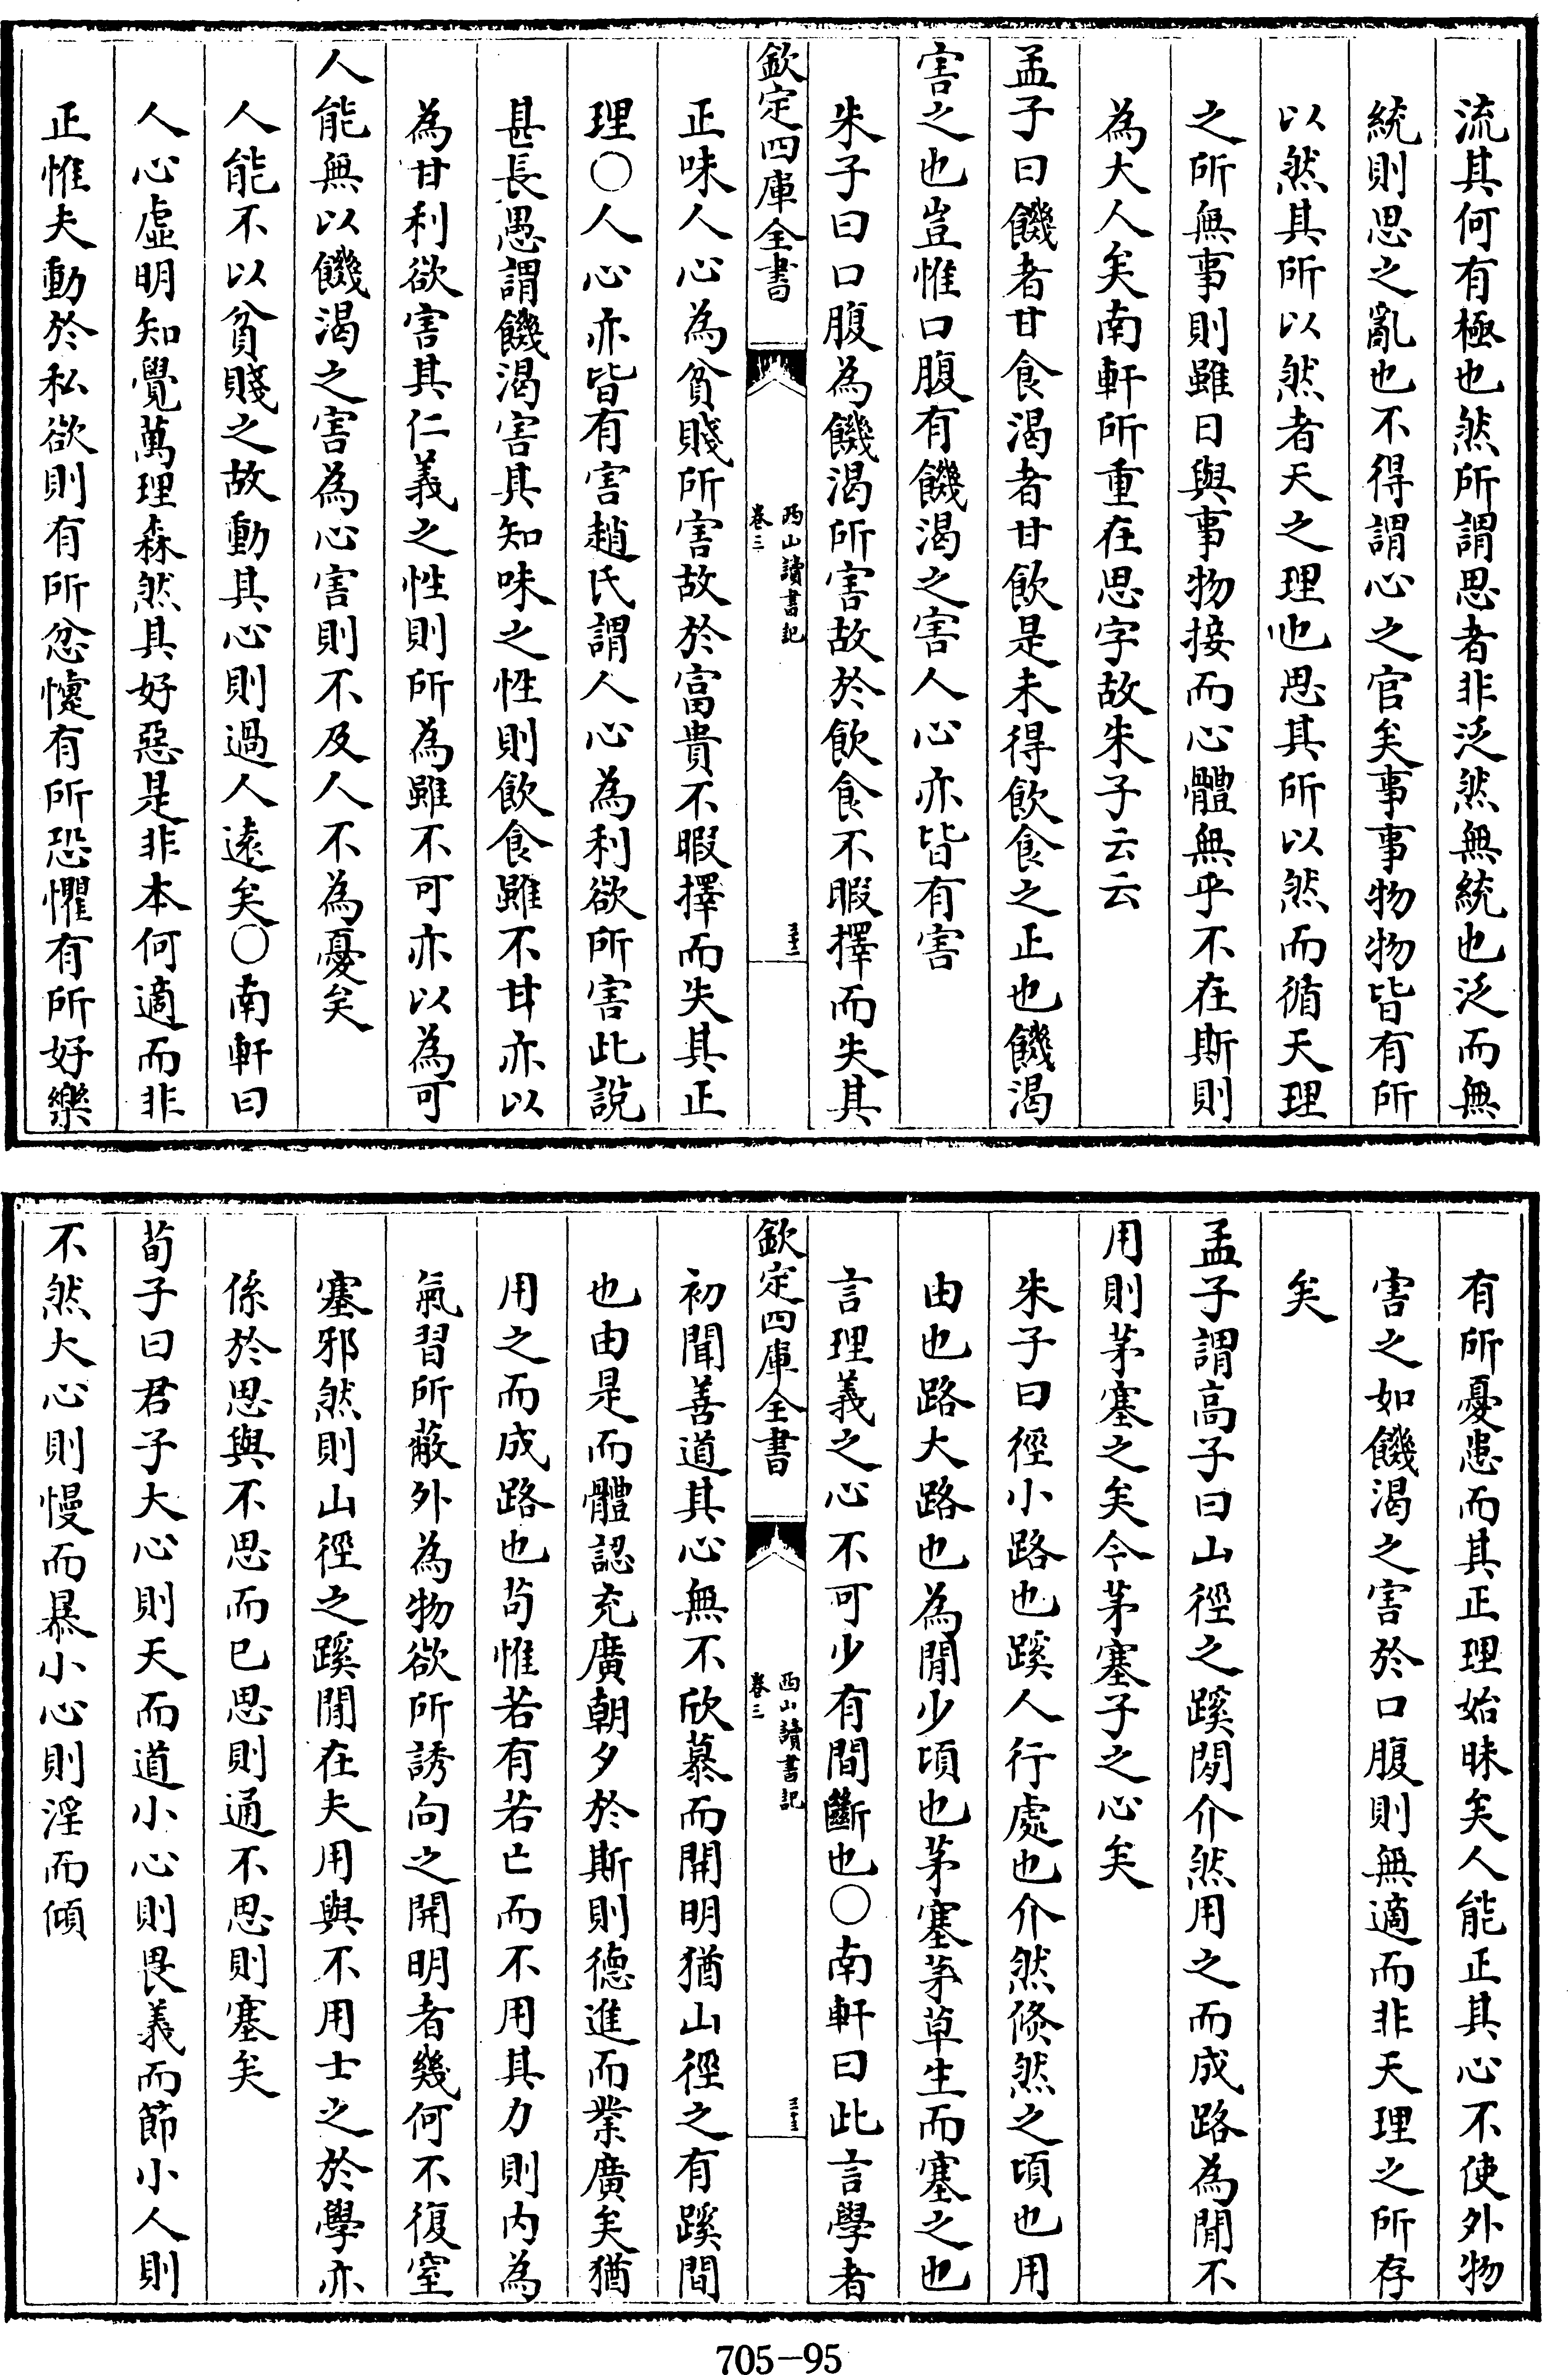 流其何有極也然所謂思者非泛然無統也泛而無
統則思之亂也不得謂心之官矣事事物物皆有所
以然其所以然者天之理也思其所以然而循天理
之所無事則雖日與事物接而心體無乎不在斯則
為大人矣南軒所重在思字故朱子云云
孟子曰饑者甘食渴者甘飲是未得飲食之正也饑渴
害之也豈惟口腹有饑渴之害人心亦皆有害
朱子曰口腹為饑渴所害故於飲食不暇擇而失其
欽定四庫全書
西山讀書記
卷三
三十二
正味人心為貧賤所害故於富貴不暇擇而失其正
理○人心亦皆有害趙氏謂人心為利欲所害此說
甚長愚謂饑渴害其知味之性則飲食雖不甘亦以
為甘利欲害其仁義之性則所為雖不可亦以為可
人能無以饑渴之害為心害則不及人不為憂矣
人能不以貧賤之故動其心則過人遠矣○南軒曰
人心虛明知覺萬理森然其好惡是非本何適而非
正惟夫動於私欲則有所忿懥有所恐懼有所好樂
有所憂患而其正理始昧矣人能正其心不使外物
害之如饑渴之害於口腹則無適而非天理之所存
矣
孟子謂高子曰山徑之蹊閒介然用之而成路為閒不
用則茅塞之矣今茅塞子之心矣
朱子曰徑小路也蹊人行處也介然倏然之頃也用
由也路大路也為閒少頃也茅塞茅草生而塞之也
言理義之心不可少有間斷也○南軒曰此言學者
欽定四庫全書
西山讀書記
卷三
三十三
初聞善道其心無不欣慕而開明猶山徑之有蹊間
也由是而體認充廣朝夕於斯則德進而業廣矣猶
用之而成路也苟惟若有若亡而不用其力則内為
氣習所蔽外為物欲所誘向之開明者幾何不復窒
塞邪然則山徑之蹊閒在夫用與不用士之於學亦
係於思與不思而已思則通不思則塞矣
荀子曰君子大心則天而道小心則畏義而節小人則
不然大心則慢而暴小心則淫而傾
705-95